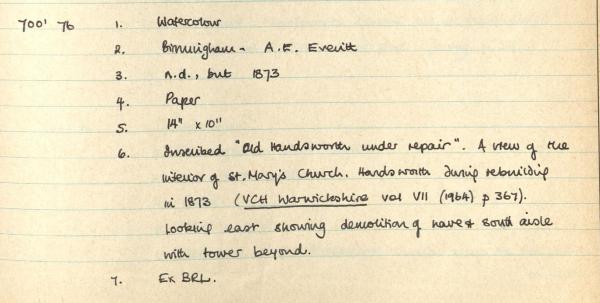 700' 76 1. Watercolour
2. Birmingham - A.E. Everitt
3. n.d., but 1873
4. Paper
5. 14" x 10"
6. Inscribed "Old Handsworth under repair". A view of the
interior of St. Mary's Church, Handsworth during rebuilding
in 1873 (VCH Warwickshire vol VII (1964) p 367).
Looking east showing demolition of nave & south aisle
with tower beyond.
7. Ex BRL.